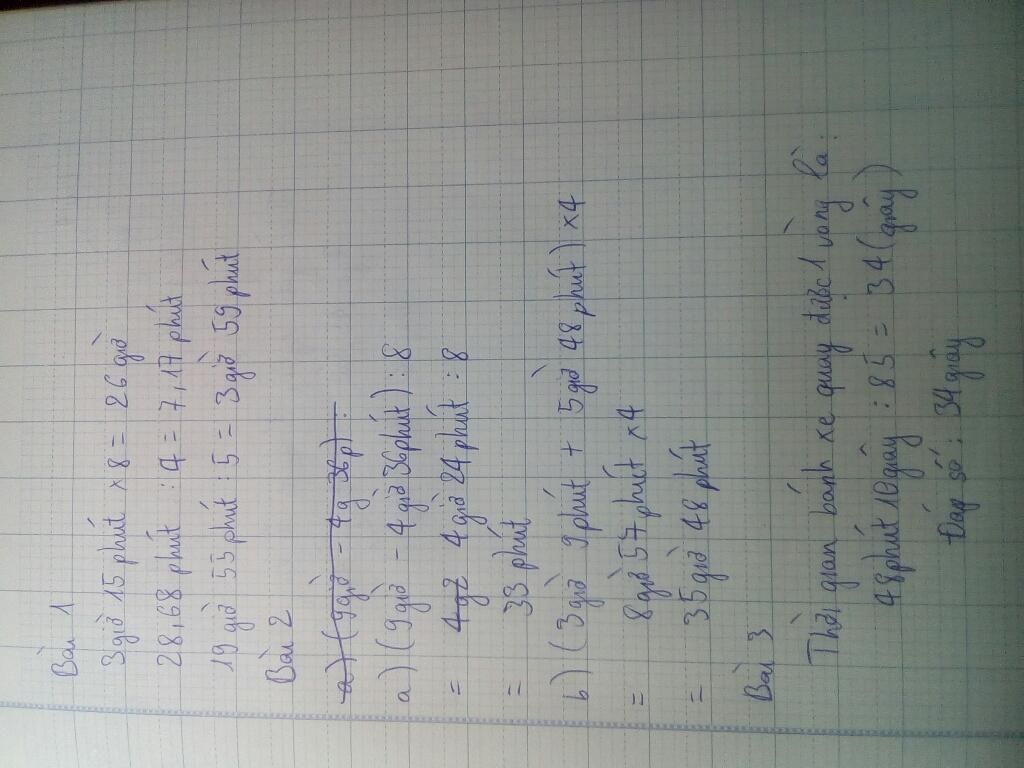 Bài 1
3 giờ 15 phút × 8 = 26 giờ
28,68 phút : 4 = 7,17 phút
19 giờ 55 phút : 5 = 3 giờ 59 phút
Bài 2
a) (9 giờ - 4 g 36 p) :
a) (9 giờ - 4 giờ 36 phút) : 8
= 4 gz 4 giờ 24 phút : 8
= 33 phút
b) (3 giờ 9 phút + 5 giờ 48 phút) × 4
= 8 giờ 57 phút × 4
= 35 giờ 48 phút
Bài 3
Thời gian bánh xe quay được 1 vòng là:
48 phút 10 giây : 85 = 34 (giây)
Đáp số: 34 giây